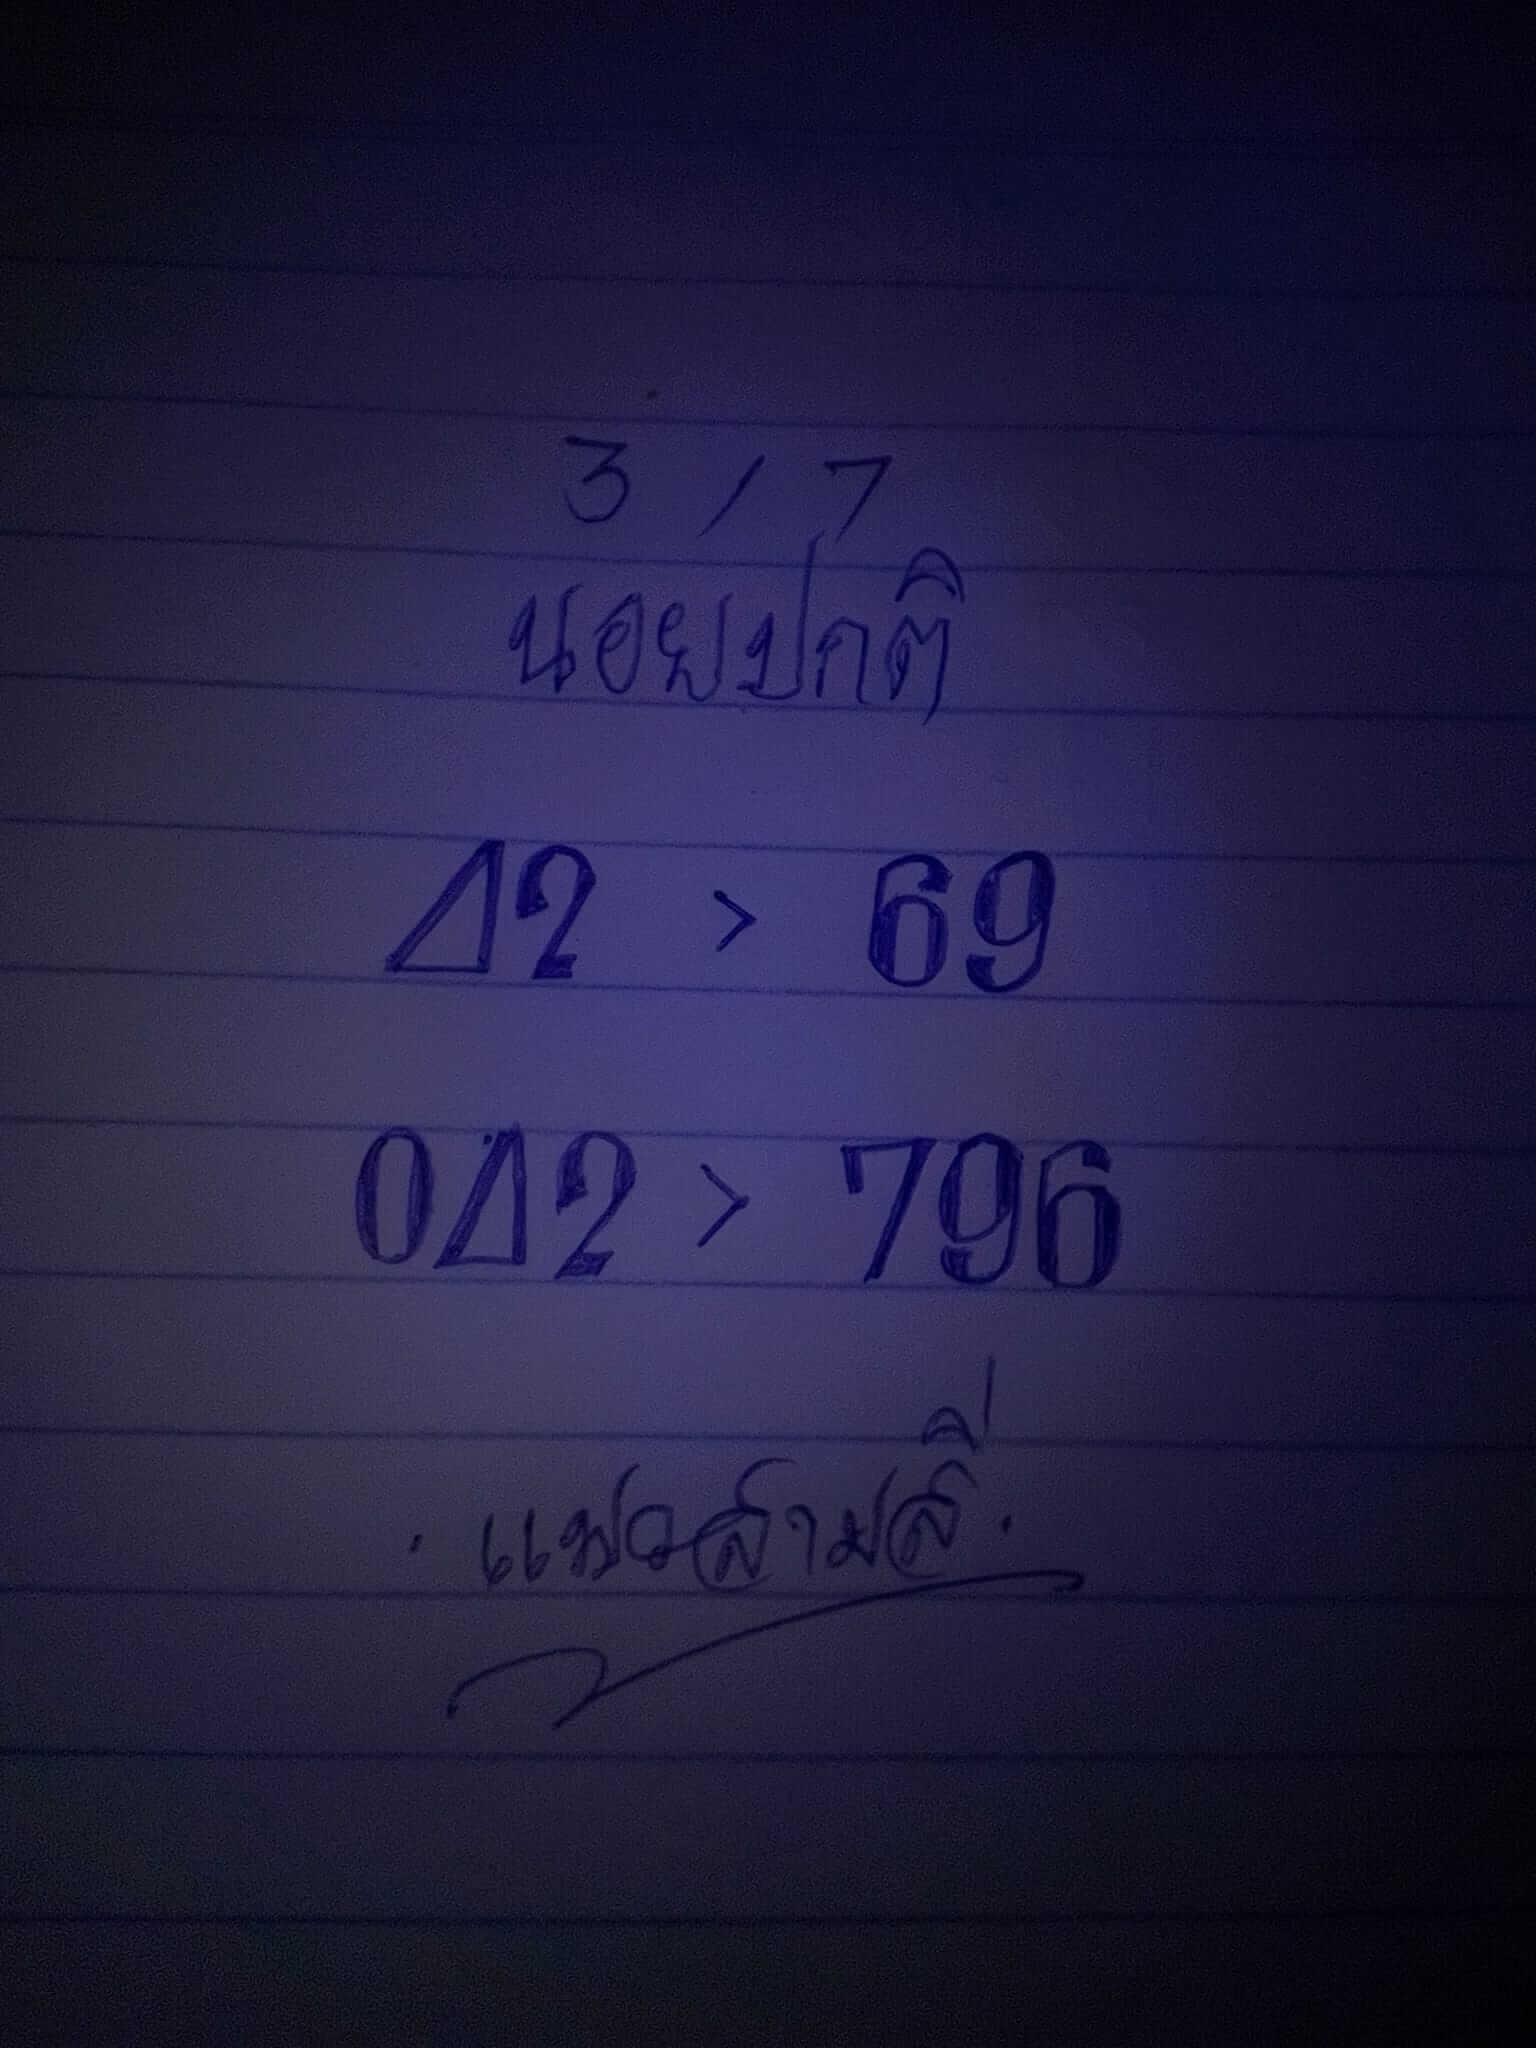 3 / 7
นอยปกติ
42 > 69
042 > 796
แมวสามสี่